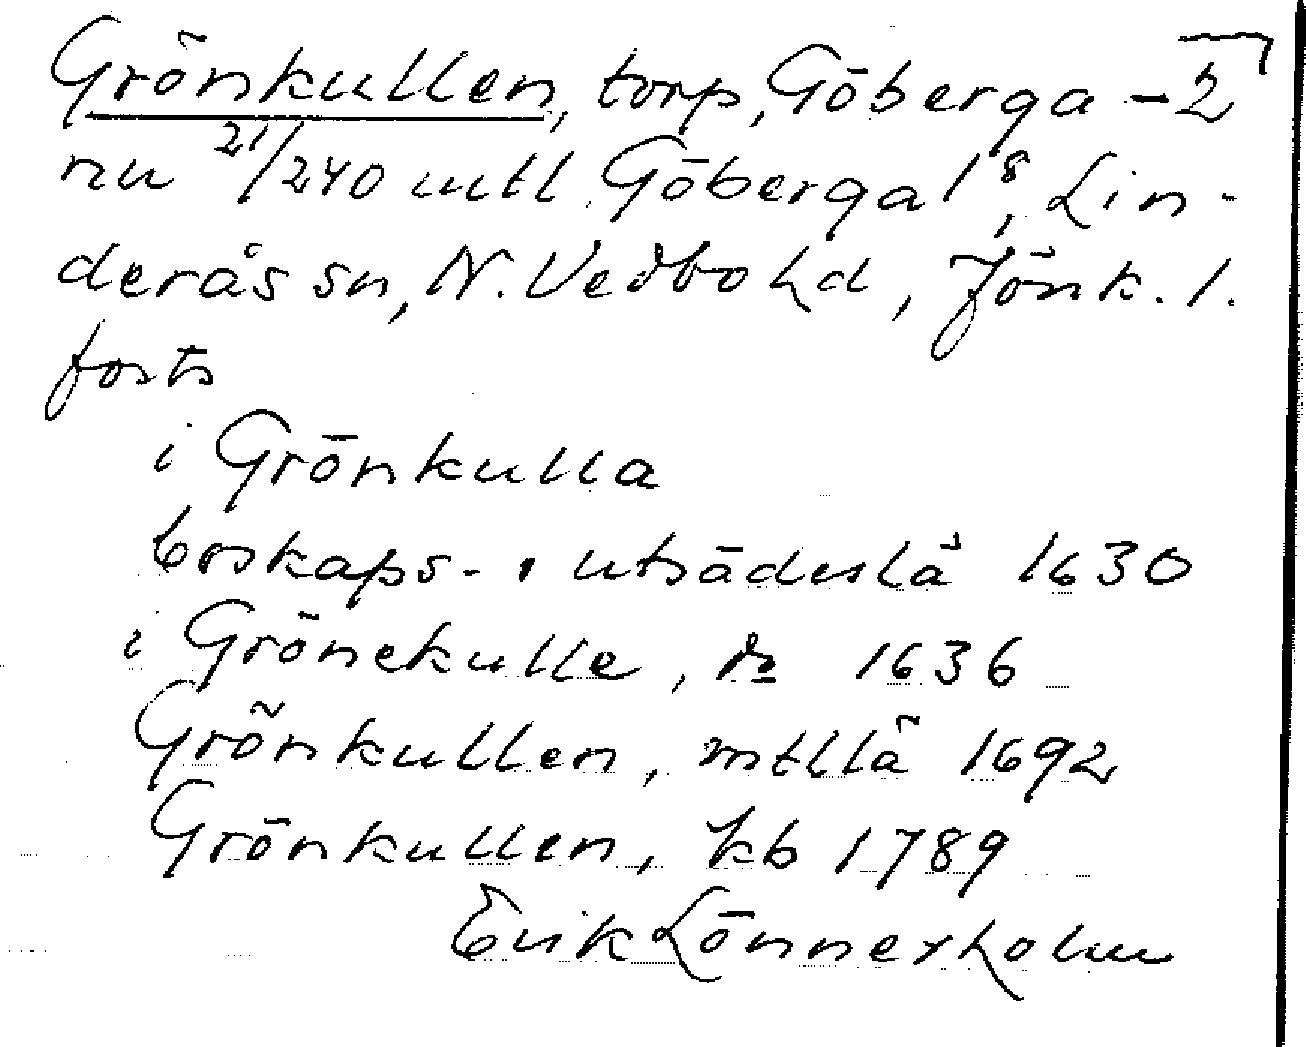 Grönkullen, torp, Göberga - 2
nu 21/240 mtl Göberga 1⁸, Lin-
derås sn, N. Vedbo hd, Jönk. l.
forts
i Grönkulla
boskaps- o utsädeslä 1630
i Grönekulle, do 1636
Grönkullen, mtllä 1692
Grönkullen, kb 1789
Erik Lönnerholm